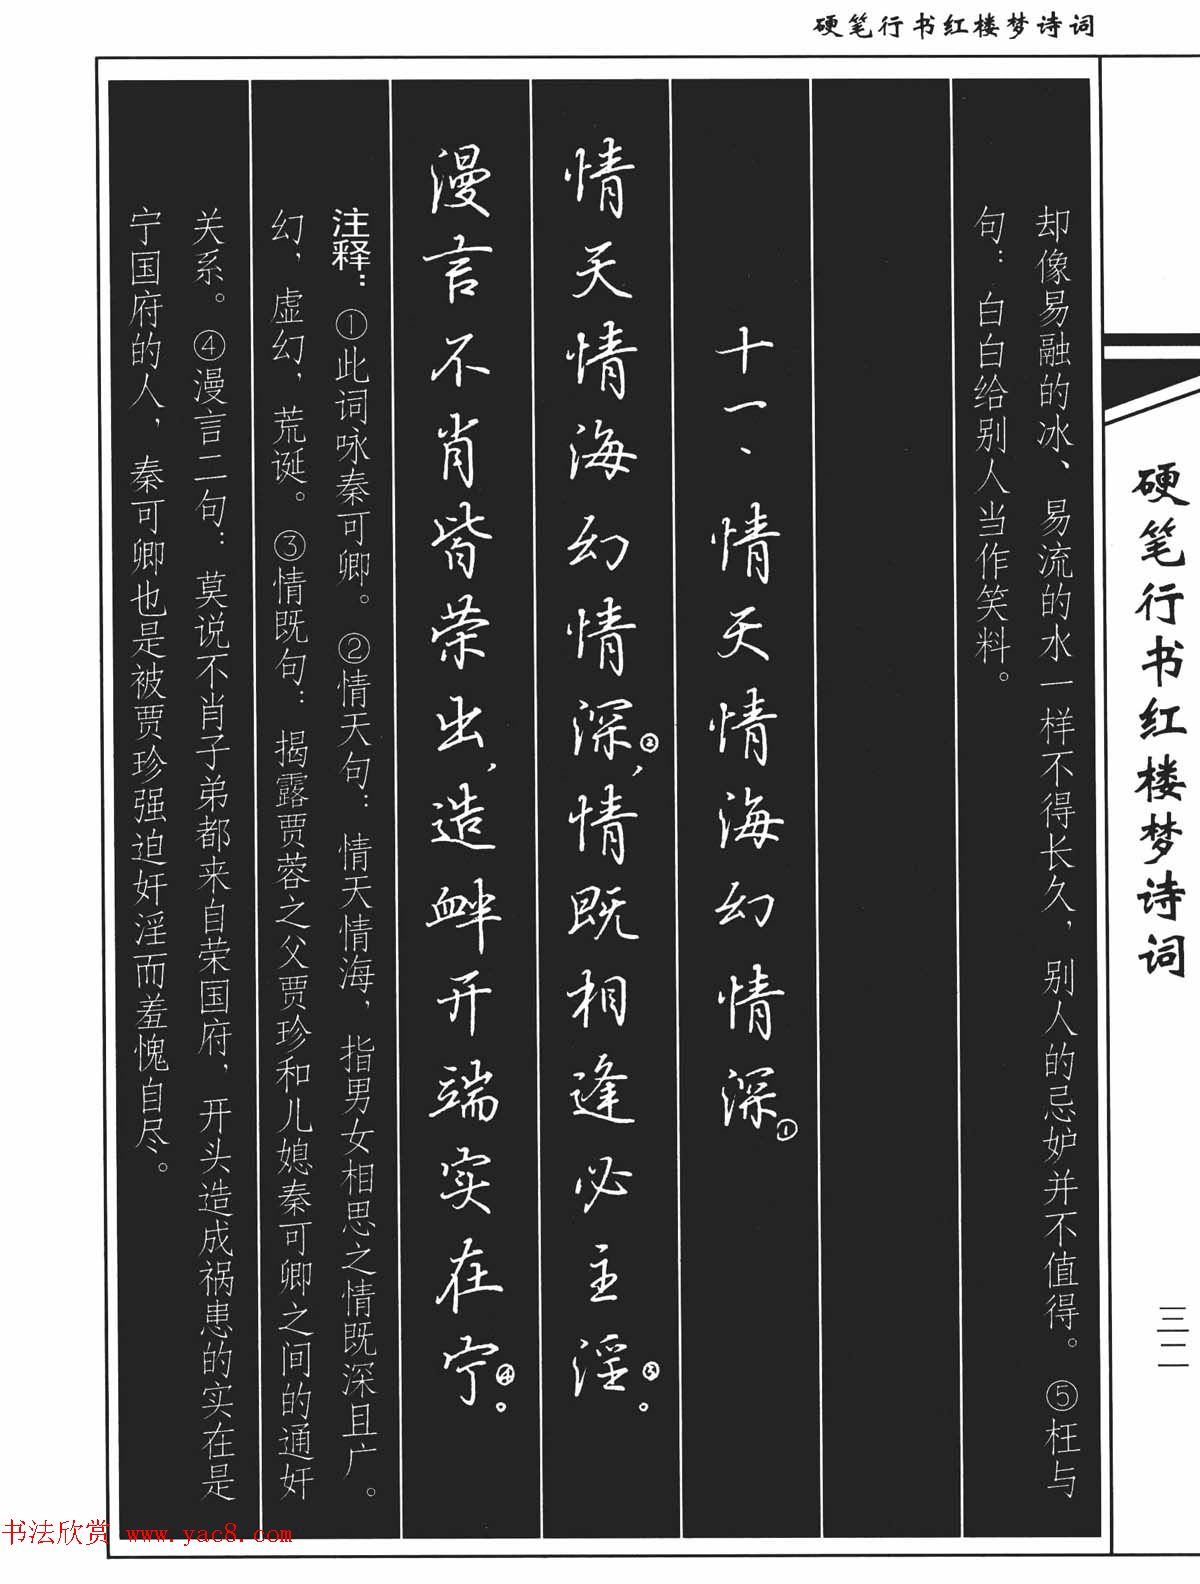 硬笔行书红楼梦诗词
硬笔行书红楼梦诗词
三二
却像易融的冰、易流的水一样不得长久，别人的忌妒并不值得。⑤枉与
句：白白给别人当作笑料。
十一、情天情海幻情深①
情天情海幻情深②，情既相逢必主淫③。
漫言不肖皆荣出，造衅开端实在宁④。
注释：①此词咏秦可卿。②情天句：情天情海，指男女相思之情既深且广。
幻，虚幻，荒诞。③情既句：揭露贾蓉之父贾珍和儿媳秦可卿之间的通奸
关系。④漫言二句：莫说不肖子弟都来自荣国府，开头造成祸患的实在是
宁国府的人，秦可卿也是被贾珍强迫奸淫而羞愧自尽。
书法欣赏 www.yac8.com